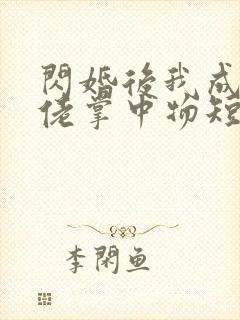 閃婚後我成
佬掌中物短
李閑鱼